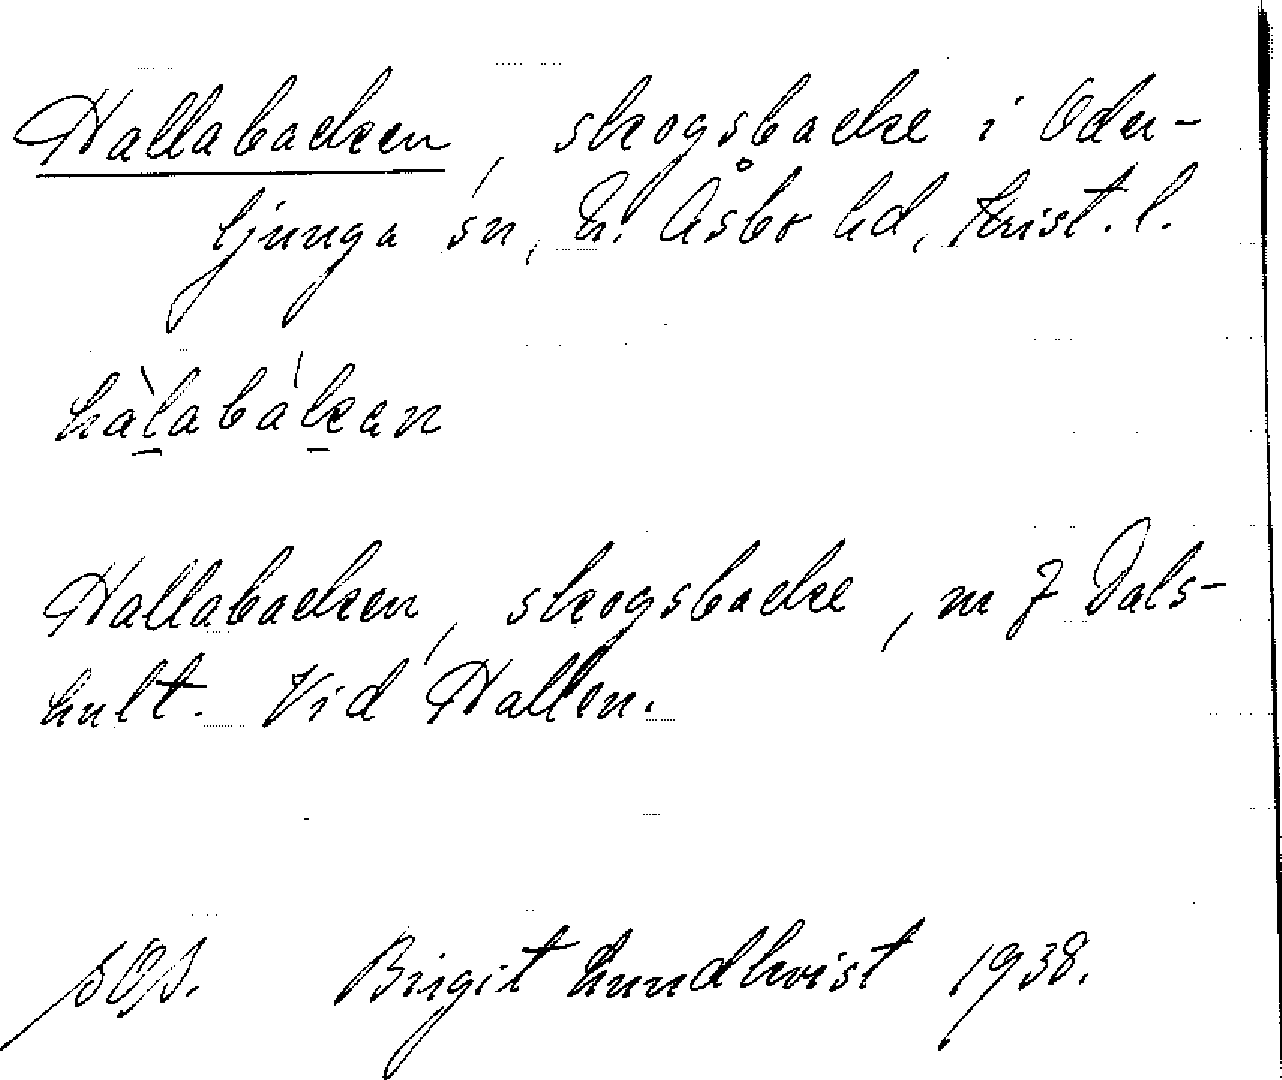 Hallabacken, skogsbacke i Oder-
ljunga sn, N. Åsbo hd, Krist. l.
hàlabákan
Hallabacken, skogsbacke, nr 7 Dals-
hult. Vid Hallen.
SOS. Birgit Lundkvist 1938.